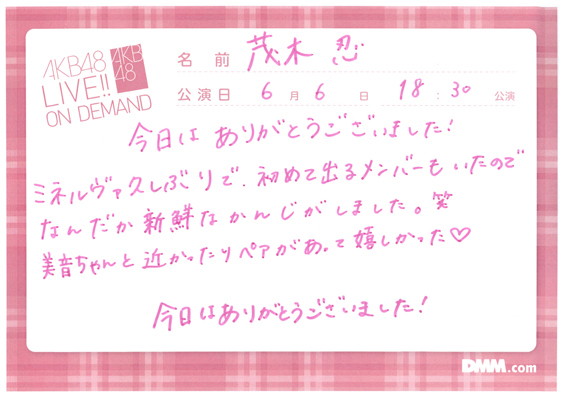 AKB48
LIVE!!
ON DEMAND
AKB
48
名前 茂木 忍
公演日 6月6日 18:30 公演
今日は ありがとうございました!
ミネルヴァ久しぶりで、初めて出るメンバーもいたので
なんだか新鮮なかんじがしました。笑
美音ちゃんと近かったりペアがあって嬉しかった♡
今日はありがとうございました!
DMM.com